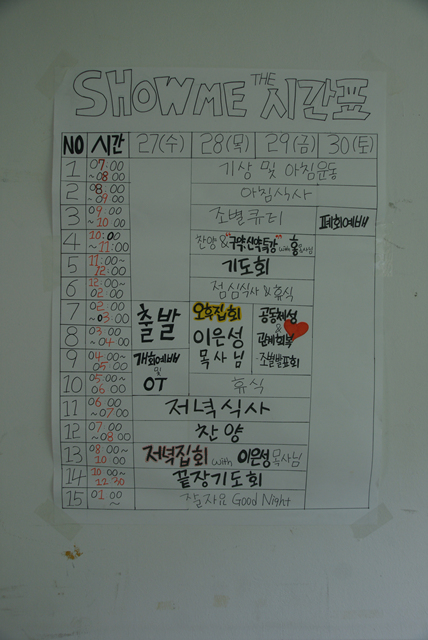 SHOW ME THE 시간표
NO 시간 27(수) 28(목) 29(금) 30(토)
1 07:00 ~08:00 기상 및 아침운동
2 08:00 ~09:00 아침식사
3 09:00 ~10:00 조별큐티 폐회예배
4 10:00 ~11:00 찬양 & "구약신약특강" with 홍
5 11:00~ 12:00 기도회
6 12:00~ 02:00 점심식사 & 휴식
7 02:00 ~03:00 출발 오후집회 공동체성 &
8 03:00 ~04:00 이은성 관계회복
9 04:00~ 05:00 개회예배 및 목사님 조별발표회
10 05:00~ 06:00 OT 휴식
11 06:00 ~07:00 저녁식사
12 07:00 ~08:00 찬양
13 08:00~ 10:00 저녁집회 with 이은성 목사님
14 10:00~ 12:30 끝장기도회
15 01:00 ~ 잘자요 Good Night